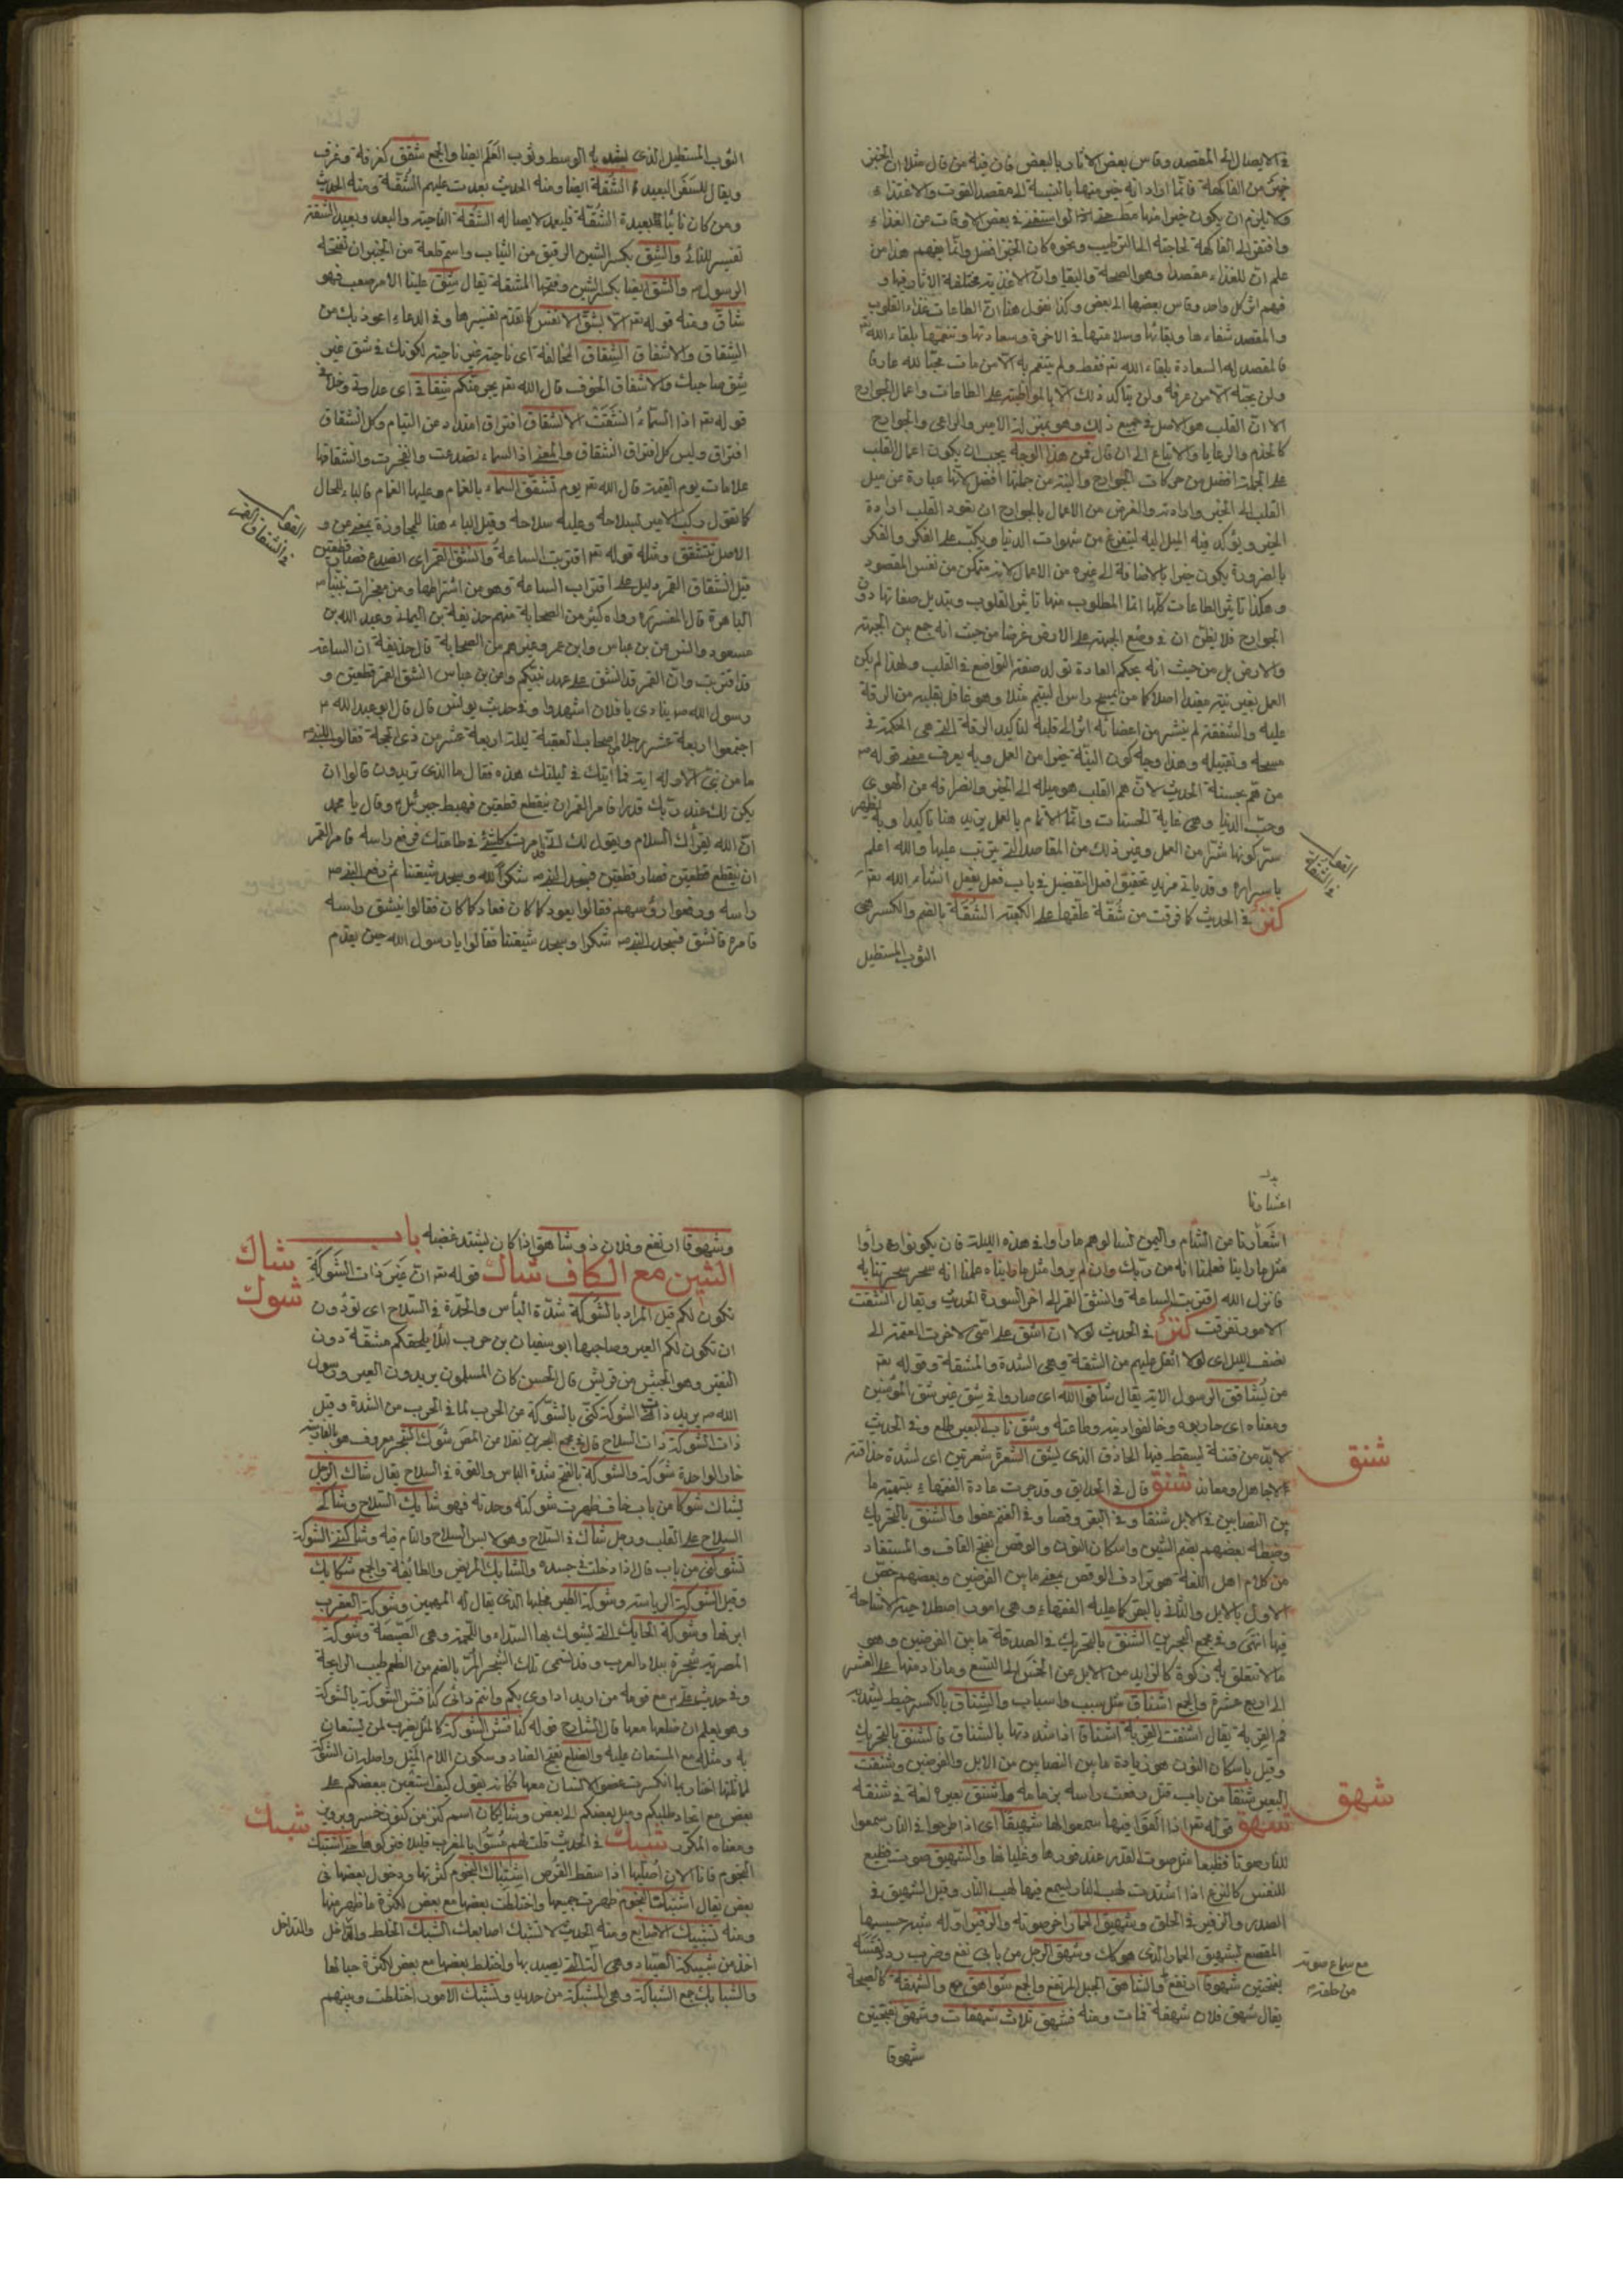 في الايصال الى المقصد وقاس بعض الآثار بالبعض فان فيه من قال مثلا ان الخبز
خير من الفاكهة فانما اراد انه خير منها بالنسبة الى مقصد القوت والاغتذاء
ولا يلزم ان يكون خيرا منها مطلقا في بعض الاوقات عن الغذاء
وافتقر الى الفاكهة لحاجته الى الترطيب ونحوه كان الخبز افضل وانما يفهم هذا من
علم ان للغذاء مقصدا وهو الصحة والبقا وان الاغذية مختلفة الآثار فيها و
فهم اثر كل واحد وقاس بعضها الى بعض وكذا نقول هنا ان الطاعات غذاء القلوب
والمقصد شفاءها وبقائها وسلامتها في الآخرة وسعادتها وتنعمها بلقاء الله تع
فالمقصد له السعادة بلقاء الله تع فقط ولم يتنعم به الا من مات محبا لله عارفا
ولن يحبه الا من عرفه ولن يتأكد ذلك الا بالمواظبة على الطاعات واعمال الجوارح
الا ان القلب هو الاصل في جميع ذلك وهو بمنزلة الامير والراعي والجوارح
كالخدم والرعايا والاتباع الى ان قال فمن هذا الوجه يجب ان يكون اعمال القلب
على الجملة افضل من حركات الجوارح والنية من جملتها افضل لانها عبارة عن ميل
القلب الى الخير وارادته والغرض من الاعمال بالجوارح ان يعود القلب ارادة
الخير ويؤكد فيه الميل اليه ليتفرغ من شهوات الدنيا ويكب على الفكر والفكر
بالضرورة يكون خيرا بالاضافة الى غيره من الاعمال لانه متمكن من نفس المقصود
وهكذا تاثير الطاعات كلها انما المطلوب منها تاثير القلوب وتبديل صفاتها دون
الجوارح فلا يظن ان في وضع الجبهة على الارض غرضا من حيث انه جمع بين الجبهة
والارض بل من حيث انه يحكم العادة تولد صفة التواضع في القلب ولهذا لم يكن
العمل بغير نية مفيدا اصلا كما من يمسح راس اليتيم مثلا وهو غافل بقلبه من الرقة
عليه والشفقة لم ينتشر من اعضائه اثر الى قلبه لتاكيد الرقة التي هي الحكمة في
مسحه وتقبيله وهذا وجه كون النية خيرا من العمل وبه يعرف معنى قوله ص
من هم بحسنة الحديث لان هم القلب هو ميله الى الخير وانصرافه من الهوى
وحب الدنيا وهي غاية الحسنات وانما الاتمام بالعمل يزيد هنا تاكيدا وبه يظهر
سر كونها شر من العمل وغير ذلك من المقاصد التي يترتب عليها والله اعلم
باسراره وقد ياتي مزيد تحقيق افعل التفضيل في باب فعل يفعل انشاء الله تع
كنز في الحديث كما فرقت من شقة علقها على الكعبة الشقة بالضم والكسر هي
الثوب المستطيل
في الشقة
الثوب المستطيل الذي يشد به الوسط وثوب العلم ايضا والجمع شقق كغرفة وغرف
ويقال للسفر البعيد الشقة ايضا ومنه الحديث بعدت عليهم الشقة ومنه الحديث
ومن كان نائيا بعيدة الشقة فليعد لايصاله الشقة الناحية والبعد وبعيد الشقة
تفسير للنائي والشق بكسر الشين الرقيق من الثياب واسم قلعة من الخيبر ان فتحته
الرسول ص والشق ايضا بكسر الشين وفتحها المشقة يقال شق علينا الامر صعب فهو
شاق ومنه قوله تع الا بشق الانفس كما تقدم تفسيرها وفي الدعاء اعوذ بك من
الشقاق والاشفاق الشقاق المخالفة اي ناحية غير ناحية لكونك في شق غير
شق صاحبك والاشفاق الخوف قال الله تع يجرمنكم شقاقي اي عداوتي وخلافي
قوله تع اذا السماء انشقت الانشقاق افتراق امتداد عن التيام وكل انشقاق
افتراق وليس كل افتراق انشقاق والمعنى اذا السماء تصدعت وانفجرت وانشقاقها
علامات يوم القيمة قال الله تع يوم تشقق السماء بالغمام وعليها الغمام فالباء للحال
كما تقول ركب الامير بسلاحه وعليه سلاحه وقيل الباء هنا للمجاوزة بمعنى عن و
الاصل تتشقق ومثله قوله تع اقتربت الساعة وانشق القمر اي انصدع فصار قطعتين
قيل انشقاق القمر دليل على اقتراب الساعة وهو من اشراطها ومن معجزات نبينا ص
الباهرة قال المفسر رواه كثير من الصحابة منهم حذيفة بن اليماني وعبد الله بن
مسعود وانس وبن عباس وابن عمر وغيرهم من الصحابة قال حذيفة ان الساعة
قد اقتربت وان القمر قد انشق على عهد نبيكم وعن بن عباس انشق القمر قطعتين و
رسول الله ص ينادي يا فلان اشهدوا وفي حديث يونس قال قال ابو عبد الله ع
اجتمعوا اربعة عشر رجلا اصحاب العقبة ليلة اربعة عشر من ذي الحجة فقالوا للنبي ص
ما من نبي الا وله اية فما ايتك في ليلتك هذه فقال ما الذي تريدون قالوا ان
يكن لك عند ربك قدرا فامر القمر ان ينقطع قطعتين فهبط جبرئيل ع وقال يا محمد
ان الله يقرأك السلام ويقول لك اني قد امرت كلشئ في طاعتك فرفع راسه فامر القمر
ان ينقطع قطعتين فصار قطعتين فسجد النبي ص شكرا لله وسجد شيعتنا ثم رفع النبي ص
راسه ورفعوا رؤسهم فقالوا يعود كما كان فعاد كما كان فقالوا ينشق راسه
فامره فانشق فسجد النبي ص شكرا وسجد شيعتنا فقالوا يا رسول الله حين يقدم
في انشقاق القمر
اشعارنا من الشام واليمن نسالوهم ما راوا في هذه الليلة فان يكونوا راوا
مثل ما راينا فعلمنا انه من ربك وان لم يروا مثل ما رايناه علمنا انه سحر سحرتنا به
فانزل الله اقتربت الساعة وانشق القمر الى اخر السورة الحديث ويقال انشقت
الامور تفرقت كنز في الحديث لولا ان اشق على امتي لاخرت العتمة الى
نصف الليل اي لولا اثقل عليهم من الشقة وهي الشدة والمشقة وقوله تع
من يشاقق الرسول الاية يقال شاقق الله اي صاروا في شق غير شق المؤمنين
ومعناه اي حاربوه وخالفوا دينه وطاعته وشق ناب البعير طلع وفي الحديث
لابد من فتنة يسقط فيها الحاذق الذي يشق الشعرة شعرتين اي لشدة حذاقته
شنق قال في الحدايق وقد جرت عادة الفقهاء بتسمية ما
بين النصابين في الابل شنقا وفي البقر وقصا وفي الغنم عفوا والشنق بالتحريك
وضبطه بعضهم بضم الشين واسكان النون والوقص بفتح القاف والمستفاد
من كلام اهل اللغة هو ترادف الوقص بمعنى ما بين الفرضين وبعضهم خص
الاول بالابل والثاني بالبقر كما عليه الفقهاء وهي امور اصطلاحية لا مشاحة
فيها انتهى وفي مجمع البحرين الشنق بالتحريك في الصدقة ما بين الفرضين وهو
ما لا تتعلق به زكوة كالزايد من الابل عن الخمس الى التسع وما زاد منها على العشر
الى اربع عشرة والجمع اشناق مثل سبب واسباب والشناق بالكسر خيط يشد به
فم القربة يقال اشنقت القربة اشناقا اذا شددتها بالشناق فالشنق بالتحريك
وقيل باسكان النون هو زيادة ما بين النصابين من الابل والفرضين وشنقت
البعير شنقا من باب قتل رفعت راسه بزمامه واشنق بعيره لغة في شنقه
شهق قوله تع اذا القوا فيها سمعوا لها شهيقا اي اذا طرحوا في النار سمعوا
للنار صوتا فظيعا مثل صوت القدر عند فورها وغليانها والشهيق صوت فظيع
للنفس كالنزع اذا اشتدت لهب النار ليسمع فيها لهب النار وقيل الشهيق في
الصدر والزفير في الحلق وشهيق الحمار اخر صوته والزفير اوله شبه حسيسها
المفظع بشهيق الحمار الذي هو كك وشهق الرجل من بابي نفع وضرب ردد نفسه
بفتحتين شهوقا ارتفع والشاهق الجبل المرتفع والجمع شواهق والشهقة كالصيحة
يقال شهق فلان شهقة فمات ومنه فشهق ثلاث شهقات وشهق بفتحتين
شهوقا
شنق
شهق
مع سماع صوته
من حلقه
وشهوقا ارتفع وفلان ذو شاهق اذا كان يشتد غضبه باب
الشين مع الكاف شاك قوله تع ان غير ذات الشوكة
تكون لكم قيل المراد بالشوكة شدة البأس والحدة في السلاح اي تودون
ان تكون لكم العير وصاحبها ابو سفيان بن حرب لئلا يلحقكم مشقة دون
النفير وهو الجيش من قريش قال الحسن كان المسلمون يريدون العير ورسول
الله ص يريد ذات الشوكة كنى بالشوكة عن الحرب لما في الحرب من الشدة وقيل
ذات الشوكة ذات السلاح قال في مجمع البحرين نقلا من المص شوك الشجر معروف هو بالفارسية
خار الواحدة شوكة والشوكة بالفتح شدة الباس والقوة في السلاح يقال شاك الرجل
يشاك شوكا من باب خاف ظهرت شوكته وحدته فهو شايك السلاح وشاكي
السلاح على القلب ورجل شاك في السلاح وهو لابس السلاح والتام فيه وشاكتني الشوكة
تشوكني من باب قال اذا دخلت في جسده والشايك المريض والطائفة والجمع شكايك
وقيل الشوكة الرياسة وشوكة الطير مخلبها الذي يقال له المهميز وشوكة العقرب
ابرتها وشوكة الحايك التي يسوك بها السداء واللحمة وهي الصيصة وشوكة
المصرية شجرة ببلاد العرب وقد تسمى تلك الشجر بالضم من الطعم طيب الرايحة
وفي حديث علي ع مع قومه من اريد اداوي بكم وانتم دائي كناقش الشوكة بالشوكة
وهو يعلم ان ضلعها معها قال الشارح قوله كناقش الشوكة كالمثل يضرب لمن يستعان
به ومثله مع المستعان عليه والضلع بفتح الضاد وسكون اللام الميل واصله ان الشوكة
لما ثلتها اختار بما انكسرت عضو الانسان معها فكانه يقول كيف استعين ببعضكم على
بعض مع اتحاد طلبكم وميل بعضكم الى بعض وشايكان اسم كنز من كنوز خسرو پرويز
ومعناه المكرر شبك في الحديث قلت لهم مسوا بالمغرب قليلا فتركوها حتى اشتبك
النجوم فانا الان اصليها اذا سقط القرص اشتباك النجوم كثرتها ودخول بعضها في
بعض يقال اشتبكت النجوم ظهرت جميعها واختلطت بعضها مع بعض لكثرة ما ظهر منها
ومنه تشبيك الاصابع ومنه الحديث لا تشبك اصابعك الشبك الخلط والتداخل
اخذ من شبيكة الصياد وهي الآلة التي يصيد بها واختلط بعضها مع بعض لكثرة حبالها
والشبابيك جمع الشباكة وهي المشبكة من حديد وتشبك الامور اختلطت وبينهم
شاك
شوك
شبك